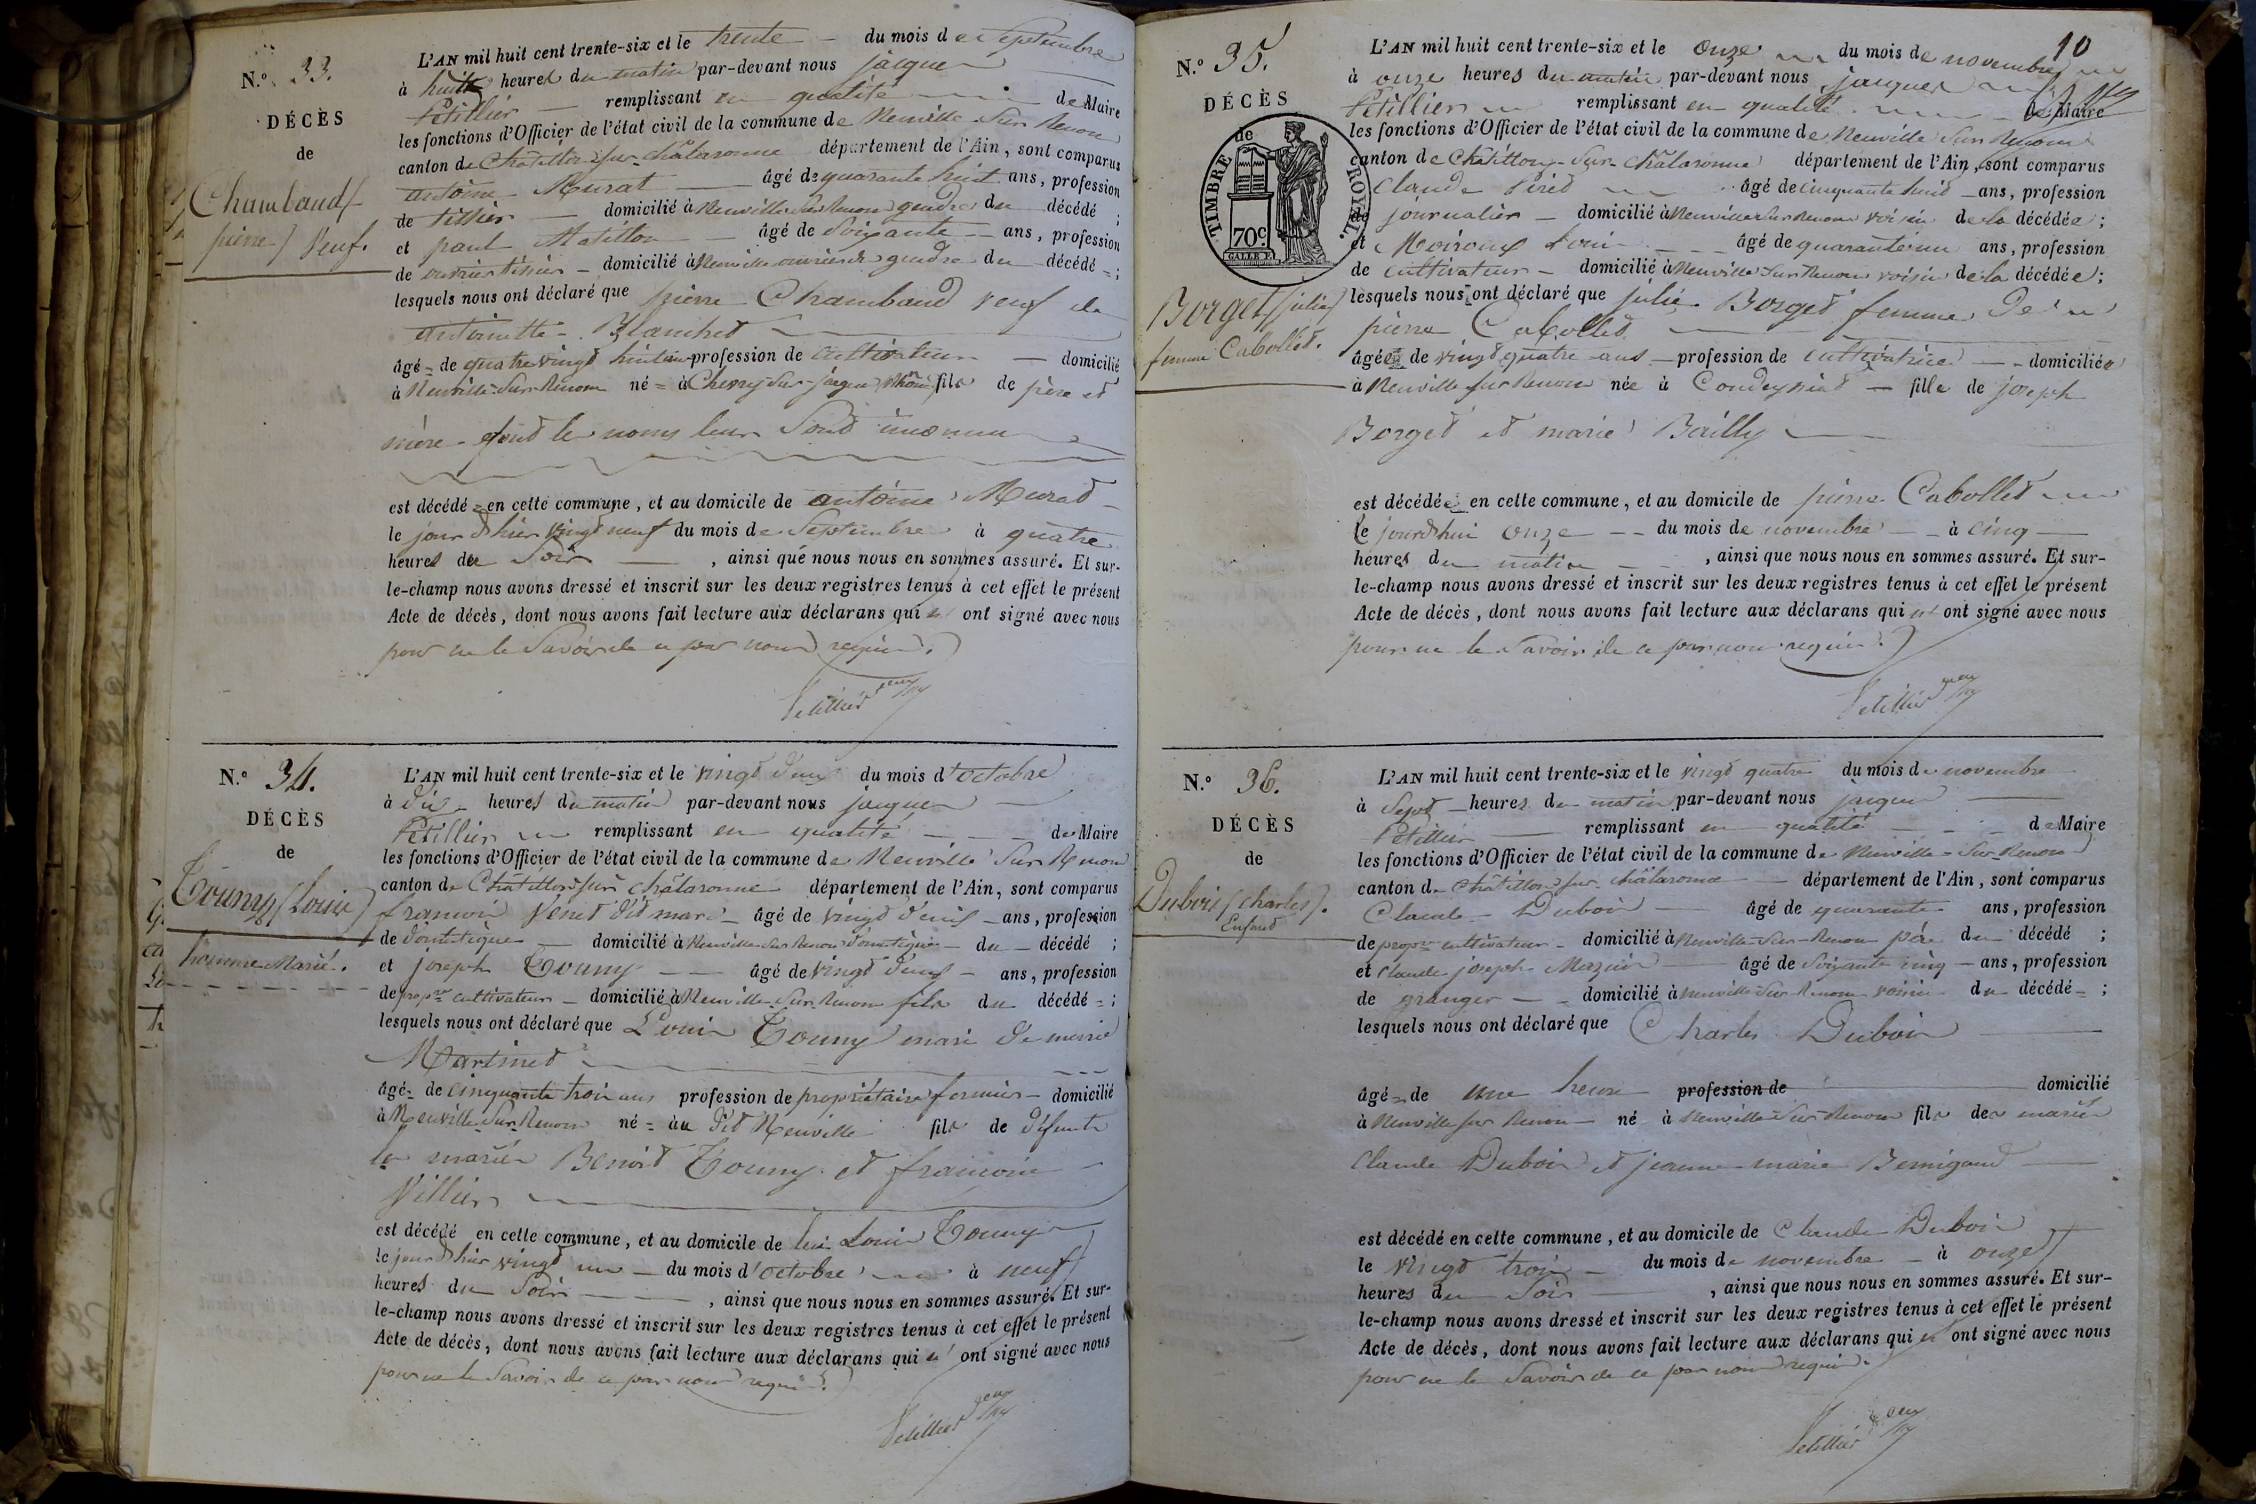 N.º 33.
DÉCÈS
de
Chambaud
pierre) Veuf.
L'AN mil huit cent trente-six et le trente du mois de Septembre
à huit heures du matin par-devant nous jacques
Petillier remplissant en qualité de Maire
les fonctions d'Officier de l'état civil de la commune de Neuville Sur Renom
canton de Châtillon-sur-châlaronne département de l'Ain, sont comparus
antoine Murat âgé de quarante huit ans, profession
de tissier domicilié à Neuville Sur Renom gendre du décédé ;
et paul Matillon âgé de Soixante ans, profession
de ouvrier tissier domicilié à Neuville gendre du décédé ;
lesquels nous ont déclaré que pierre Chambaud veuf de
antoinette Blanchet
âgé de quatre vingt huit ans profession de cultivateur domicilié
à Neuville Sur Renom né à fils de père et
mère dont le noms leur Sont inconnu
est décédé en cette commune, et au domicile de antoine Murat
le jour d'hier vingt neuf du mois de Septembre à quatre
heures du Soir , ainsi que nous nous en sommes assuré. Et sur-
le-champ nous avons dressé et inscrit sur les deux registres tenus à cet effet le présent
Acte de décès, dont nous avons fait lecture aux déclarans qui n' ont signé avec nous
pour ne le Savoir de ce par nous requis.
Petillier
N.º 34.
DÉCÈS
de
Touny (Louis)
homme Marié.
L'AN mil huit cent trente-six et le vingt deux du mois d'octobre
à dix heures du matin par-devant nous jacques
Petillier remplissant en qualité de Maire
les fonctions d'Officier de l'état civil de la commune de Neuville Sur Renom
canton de Châtillon sur châlaronne département de l'Ain, sont comparus
francois dit âgé de vingt deux ans, profession
de domestique domicilié à Neuville Sur Renom domestique du décédé ;
et joseph Touny âgé de vingt deux ans, profession
de propre cultivateur domicilié à Neuville Sur Renom fils du décédé ;
lesquels nous ont déclaré que Louis Touny mari de marie
Martinet
âgé de cinquante trois ans profession de propriétaire fermier domicilié
à Neuville Sur Renom né au dit Neuville fils de défunts
les mariés Benoit Touny et francoise
Villier
est décédé en cette commune, et au domicile de lui Louis Touny
le jour d'hier vingt un du mois d'octobre à neuf
heures du Soir , ainsi que nous nous en sommes assuré. Et sur-
le-champ nous avons dressé et inscrit sur les deux registres tenus à cet effet le présent
Acte de décès, dont nous avons fait lecture aux déclarans qui n' ont signé avec nous
pour ne le Savoir de ce par nous requis.
Petillier
10
N.º 35.
DÉCÈS
de
TIMBRE ROYAL.
70c
Borget (julie)
femme Cabollet.
L'AN mil huit cent trente-six et le onze du mois de novembre
à onze heures du matin par-devant nous jacques
Petillier remplissant en qualité de Maire
les fonctions d'Officier de l'état civil de la commune de Neuville Sur Renom
canton de Châtillon-Sur-châlaronne département de l'Ain, sont comparus
Claude âgé de cinquante huit ans, profession
de journalier domicilié à Neuville Sur Renom voisin de la décédée ;
et Moiroux Louis âgé de quarante un ans, profession
de cultivateur domicilié à Neuville Sur Renom voisin de la décédée ;
lesquels nous ont déclaré que julie Borget femme de
pierre Cabollet
âgée de vingt quatre ans profession de cultivatrice domiciliée
à Neuville sur Renom née à Condeyssiat fille de joseph
Borget et marie Bailly
est décédée en cette commune, et au domicile de pierre Cabollet
le jourd'hui onze du mois de novembre à cinq
heures du matin , ainsi que nous nous en sommes assuré. Et sur-
le-champ nous avons dressé et inscrit sur les deux registres tenus à cet effet le présent
Acte de décès, dont nous avons fait lecture aux déclarans qui n' ont signé avec nous
pour ne le Savoir de ce par nous requis.
Petillier
N.º 36.
DÉCÈS
de
Dubois (charles).
Enfant
L'AN mil huit cent trente-six et le vingt quatre du mois de novembre
à Sept heures du matin par-devant nous jacques
Petillier remplissant en qualité de Maire
les fonctions d'Officier de l'état civil de la commune de Neuville-Sur-Renom
canton de Châtillon sur châlaronne département de l'Ain, sont comparus
Claude Dubois âgé de quarante ans, profession
de propre cultivateur domicilié à Neuville-Sur-Renom père du décédé ;
et Claude joseph âgé de Soixante cinq ans, profession
de granger domicilié à Neuville Sur Renom voisin du décédé ;
lesquels nous ont déclaré que Charles Dubois
âgé de une heure profession de domicilié
à Neuville sur Renom né à Neuville Sur Renom fils des mariés
Claude Dubois et jeanne marie Bernigaud
est décédé en cette commune, et au domicile de Claude Dubois
le vingt trois du mois de novembre à onze
heures du Soir , ainsi que nous nous en sommes assuré. Et sur-
le-champ nous avons dressé et inscrit sur les deux registres tenus à cet effet le présent
Acte de décès, dont nous avons fait lecture aux déclarans qui n' ont signé avec nous
pour ne le Savoir de ce par nous requis.
Petillier